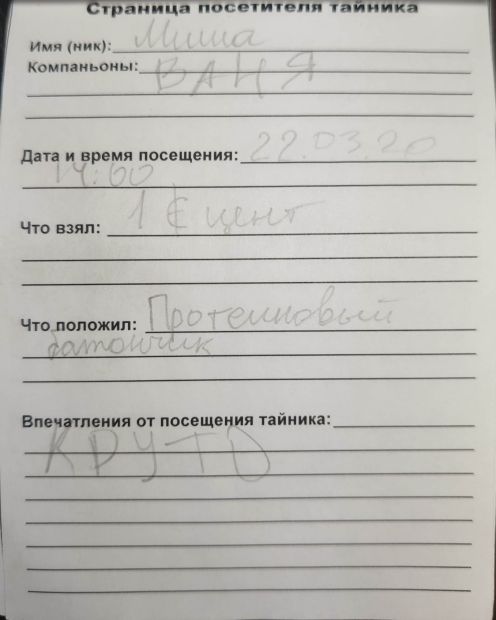 Страница посетителя тайника
Имя (ник): Миша
Компаньоны: ВАНЯ
Дата и время посещения: 22.03.20
14:00
Что взял: 1 € цент
Что положил: Протеиновый
батончик
Впечатления от посещения тайника:
КРУТО